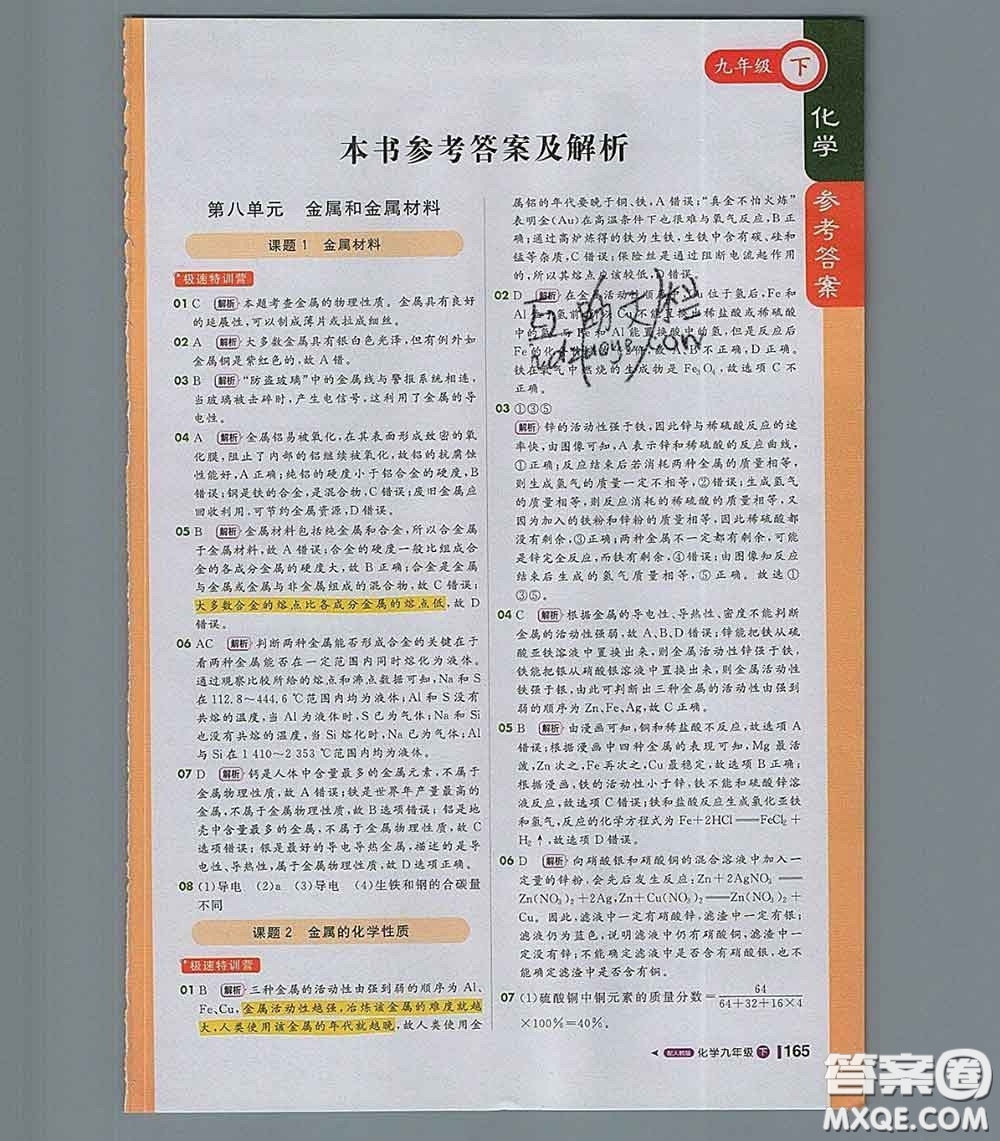 九年级 下
化学
参考答案
本书参考答案及解析
第八单元 金属和金属材料
课题1 金属材料
极速特训营
01 C 解析 本题考查金属的物理性质。金属具有良好
的延展性,可以制成薄片或拉成细丝。
02 A 解析 大多数金属具有银白色光泽,但有例外如
金属铜是紫红色的,故A错。
03 B 解析 “防盗玻璃”中的金属线与警报系统相连,
当玻璃被击碎时,产生电信号,这利用了金属的导
电性。
04 A 解析 金属铝易被氧化,在其表面形成致密的氧
化膜,阻止了内部的铝继续被氧化,故铝的抗腐蚀
性能好,A正确;纯铝的硬度小于铝合金的硬度,B
错误;钢是铁的合金,是混合物,C错误;废旧金属应
回收利用,可节约金属资源,D错误。
05 B 解析 金属材料包括纯金属和合金,所以合金属
于金属材料,故A错误;合金的硬度一般比组成合
金的各成分金属的硬度大,故B正确;合金是金属
与金属或金属与非金属组成的混合物,故C错误;
大多数合金的熔点比各成分金属的熔点低,故D
错误。
06 AC 解析 判断两种金属能否形成合金的关键在于
看两种金属能否在一定范围内同时熔化为液体。
通过观察比较所给的熔点和沸点数据可知,Na和S
在112.8~444.6℃范围内均为液体;Al和S没有
共熔的温度,当Al为液体时,S已为气体;Na和Si
也没有共熔的温度,当Si熔化时,Na已为气体;Al
与Si在1 410~2 353℃范围内均为液体。
07 D 解析 钙是人体中含量最多的金属元素,不属于
金属物理性质,故A错误;铁是世界年产量最高的
金属,不属于金属物理性质,故B选项错误;铝是地
壳中含量最多的金属,不属于金属物理性质,故C
选项错误;银是最好的导电导热金属,描述的是导
电性、导热性,属于金属物理性质,故D选项正确。
08 (1)导电 (2)a (3)导电 (4)生铁和钢的含碳量
不同
课题2 金属的化学性质
极速特训营
01 B 解析 三种金属的活动性由强到弱的顺序为Al、
Fe、Cu,金属活动性越强,冶炼该金属的难度就越
大,人类使用该金属的年代就越晚,故人类使用金
属铝的年代要晚于铜、铁,A错误;“真金不怕火炼”
表明金(Au)在高温条件下也很难与氧气反应,B正
确;通过高炉炼得的铁为生铁,生铁中含有碳、硅和
锰等杂质,C错误;保险丝是通过阻断电流而起作用
的,所以其熔点应该较低,D错误。
02 D 解析 在金属活动性顺序中,Cu位于氢后,Fe和
Al在氢前,Cu不能置换出稀盐酸或稀硫酸
中的氢,而Fe和Al能置换酸中的氢,但是反应后
Fe的化合价为,故A、B不正确,D正确。
铁在氧气中燃烧的生成物是Fe₃O₄,故选项C不
正确。
03 ①③⑤
解析 锌的活动性强于铁,因此锌与稀硫酸反应的速
率快,由图像可知,A表示锌和硫酸的反应曲线,
①正确;反应结束后若消耗两种金属的质量相等,
则生成氢气的质量一定不相等,②错误;生成氢气
的质量相等,则反应消耗的稀硫酸的质量相等,又
因为加入的铁粉和锌粉的质量相等,因此稀硫酸都
没有剩余,③正确;两种金属不一定都有剩余,可能
是锌完全反应,而铁有剩余,④错误;由图像知反应
结束后生成的氢气质量相等,⑤正确。故选①
③⑤。
04 C 解析 根据金属的导电性、导热性、密度不能判断
金属的活动性强弱,故A、B、D错误;锌能把铁从硫
酸亚铁溶液中置换出来,则锌的活动性强于铁,
铁能把银从硝酸银溶液中置换出来,则金属活动性
铁强于银,由此可判断出三种金属的活动性由强到
弱的顺序为Zn、Fe、Ag,故C正确。
05 B 解析 由漫画可知,铜和稀盐酸不反应,故选项A
错误;根据漫画中四种金属的表现可知,Mg最活
泼,Zn次之,Fe再次之,Cu最稳定,故选项B正确;
根据漫画,铁的活动性小于锌,铁不能和硫酸锌溶
液反应,故选项C错误;铁和盐酸反应生成氯化亚铁
和氢气,反应的化学方程式为Fe+2HCl══FeCl₂+
H₂↑,故选项D错误。
06 D 解析 向硝酸银和硝酸铜的混合溶液中加入一
定量的锌粉,会先后发生反应;Zn+2AgNO₃══
Zn(NO₃)₂+2Ag,Zn+Cu(NO₃)₂══Zn(NO₃)₂+
Cu。因此,滤液中一定有硝酸锌,滤渣中一定有银;
滤液仍为蓝色,说明滤液中一定有硝酸铜,滤渣中一
定没有锌;不能确定滤液中是否含有硝酸银,也不
能确定滤渣中是否含有铜。
07 (1)硫酸铜中铜元素的质量分数=64/(64+32+16×4)
×100%=40%。
配人教版 化学九年级 下 165
答案圈
MXQE.COM